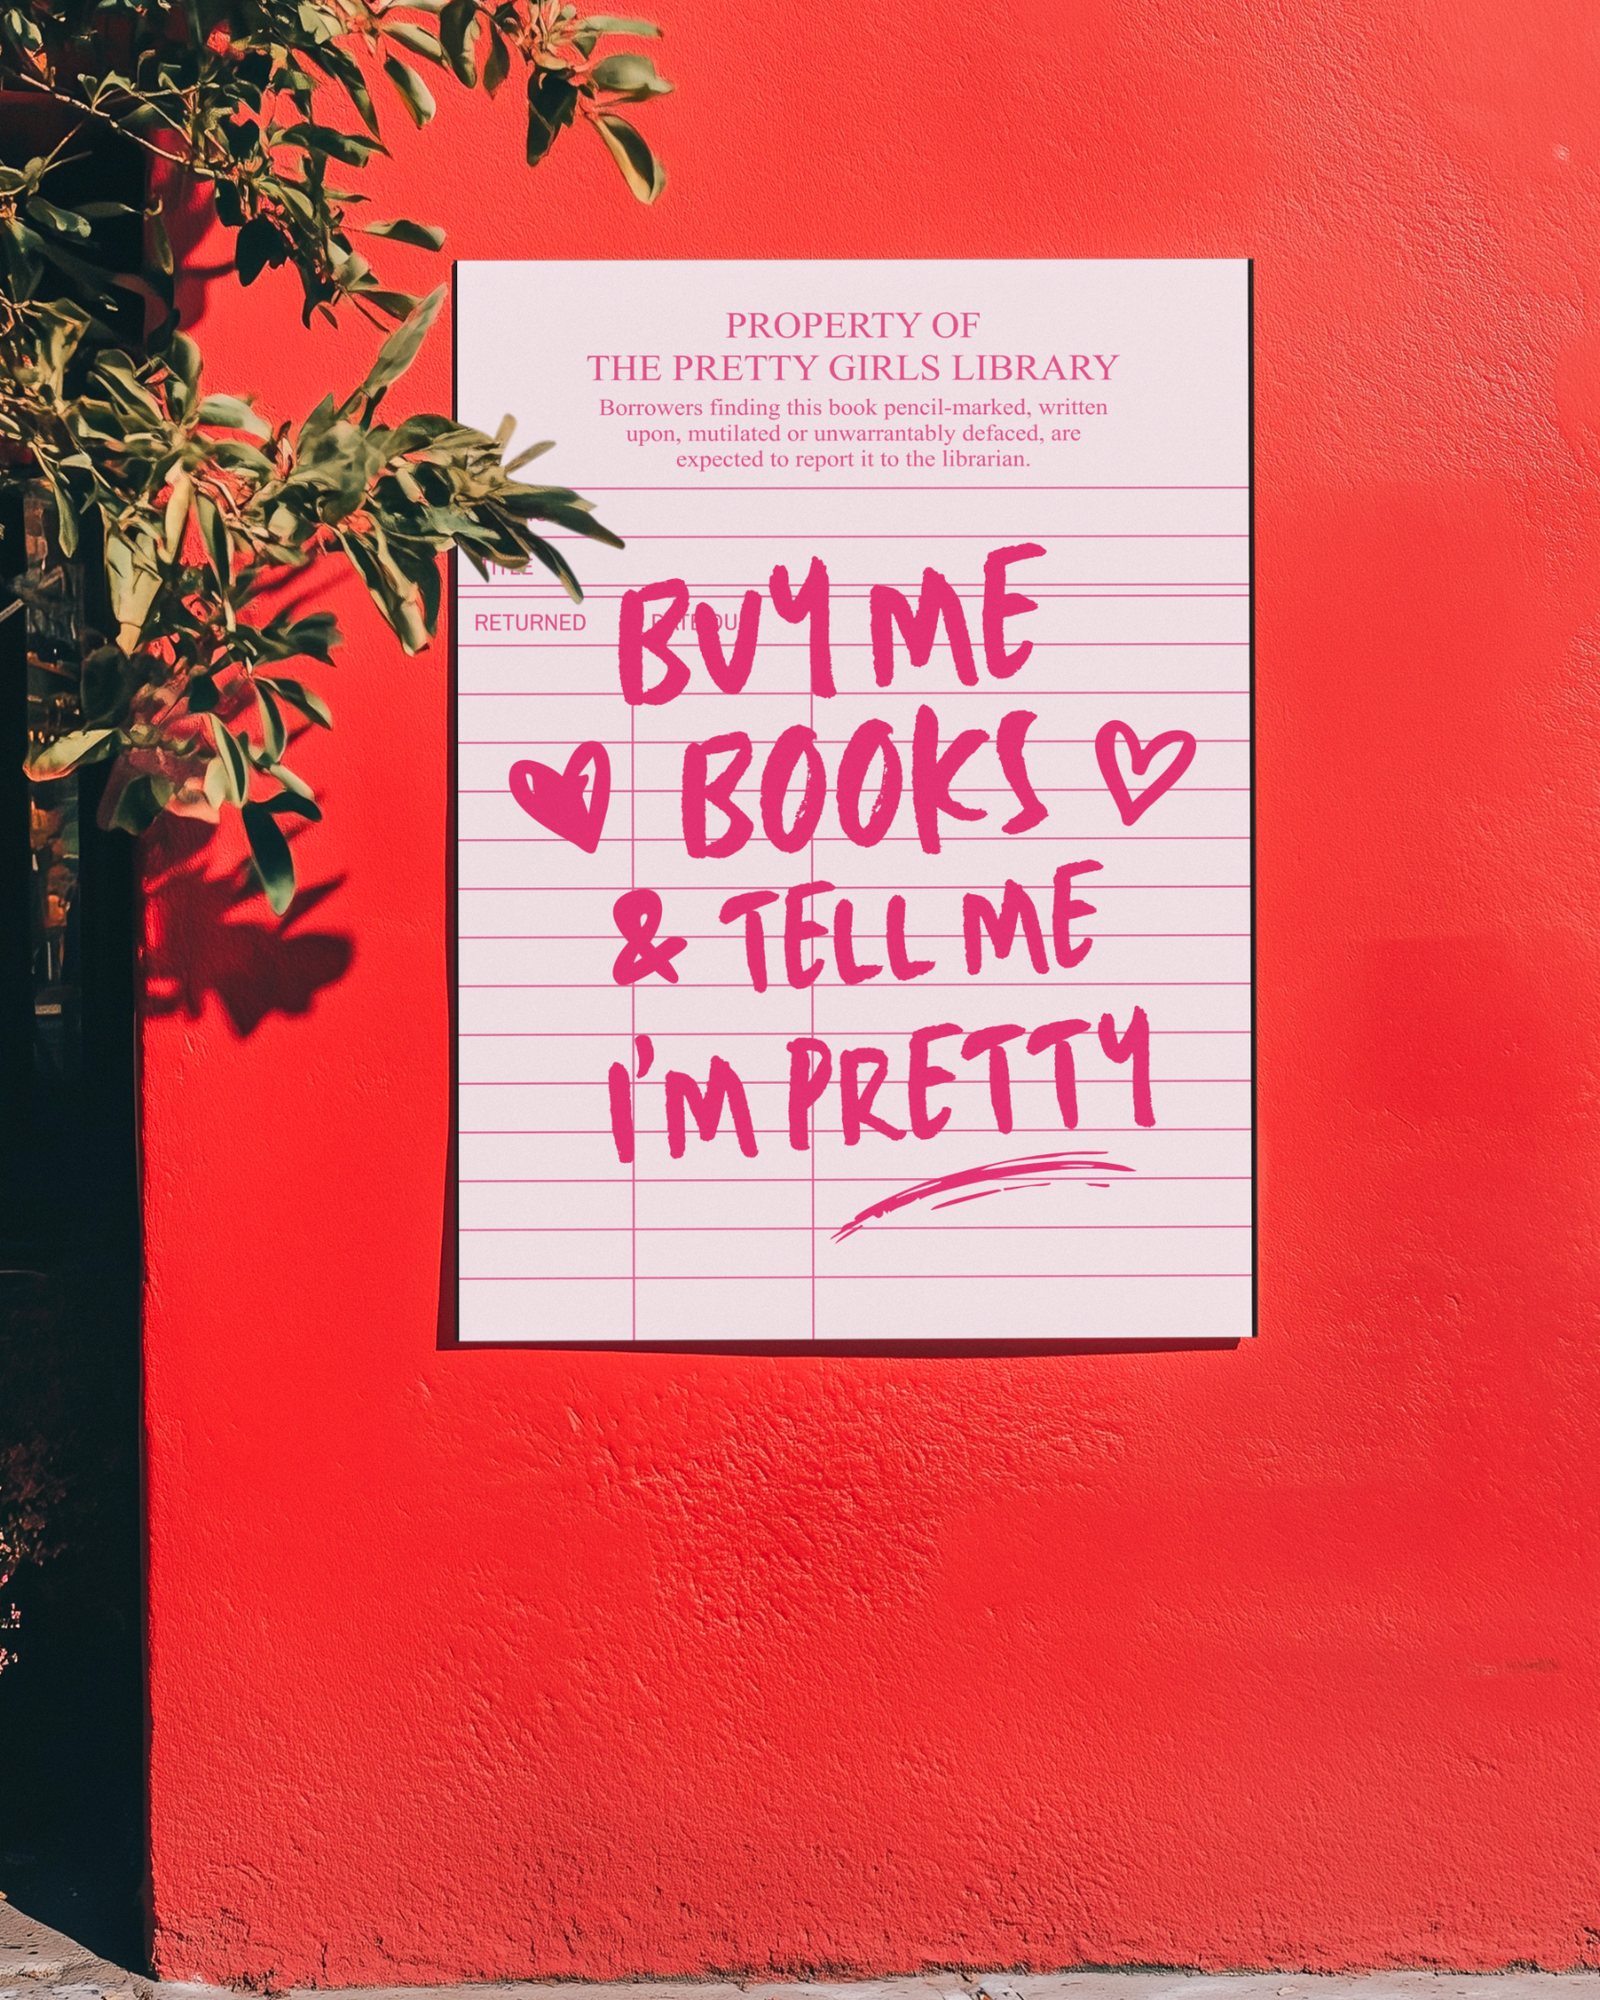 PROPERTY OF
THE PRETTY GIRLS LIBRARY
Borrowers finding this book pencil-marked, written
upon, mutilated or unwarrantably defaced, are
expected to report it to the librarian.
TITLE
RETURNED DATE DUE
BUY ME
BOOKS
& TELL ME
I'M PRETTY